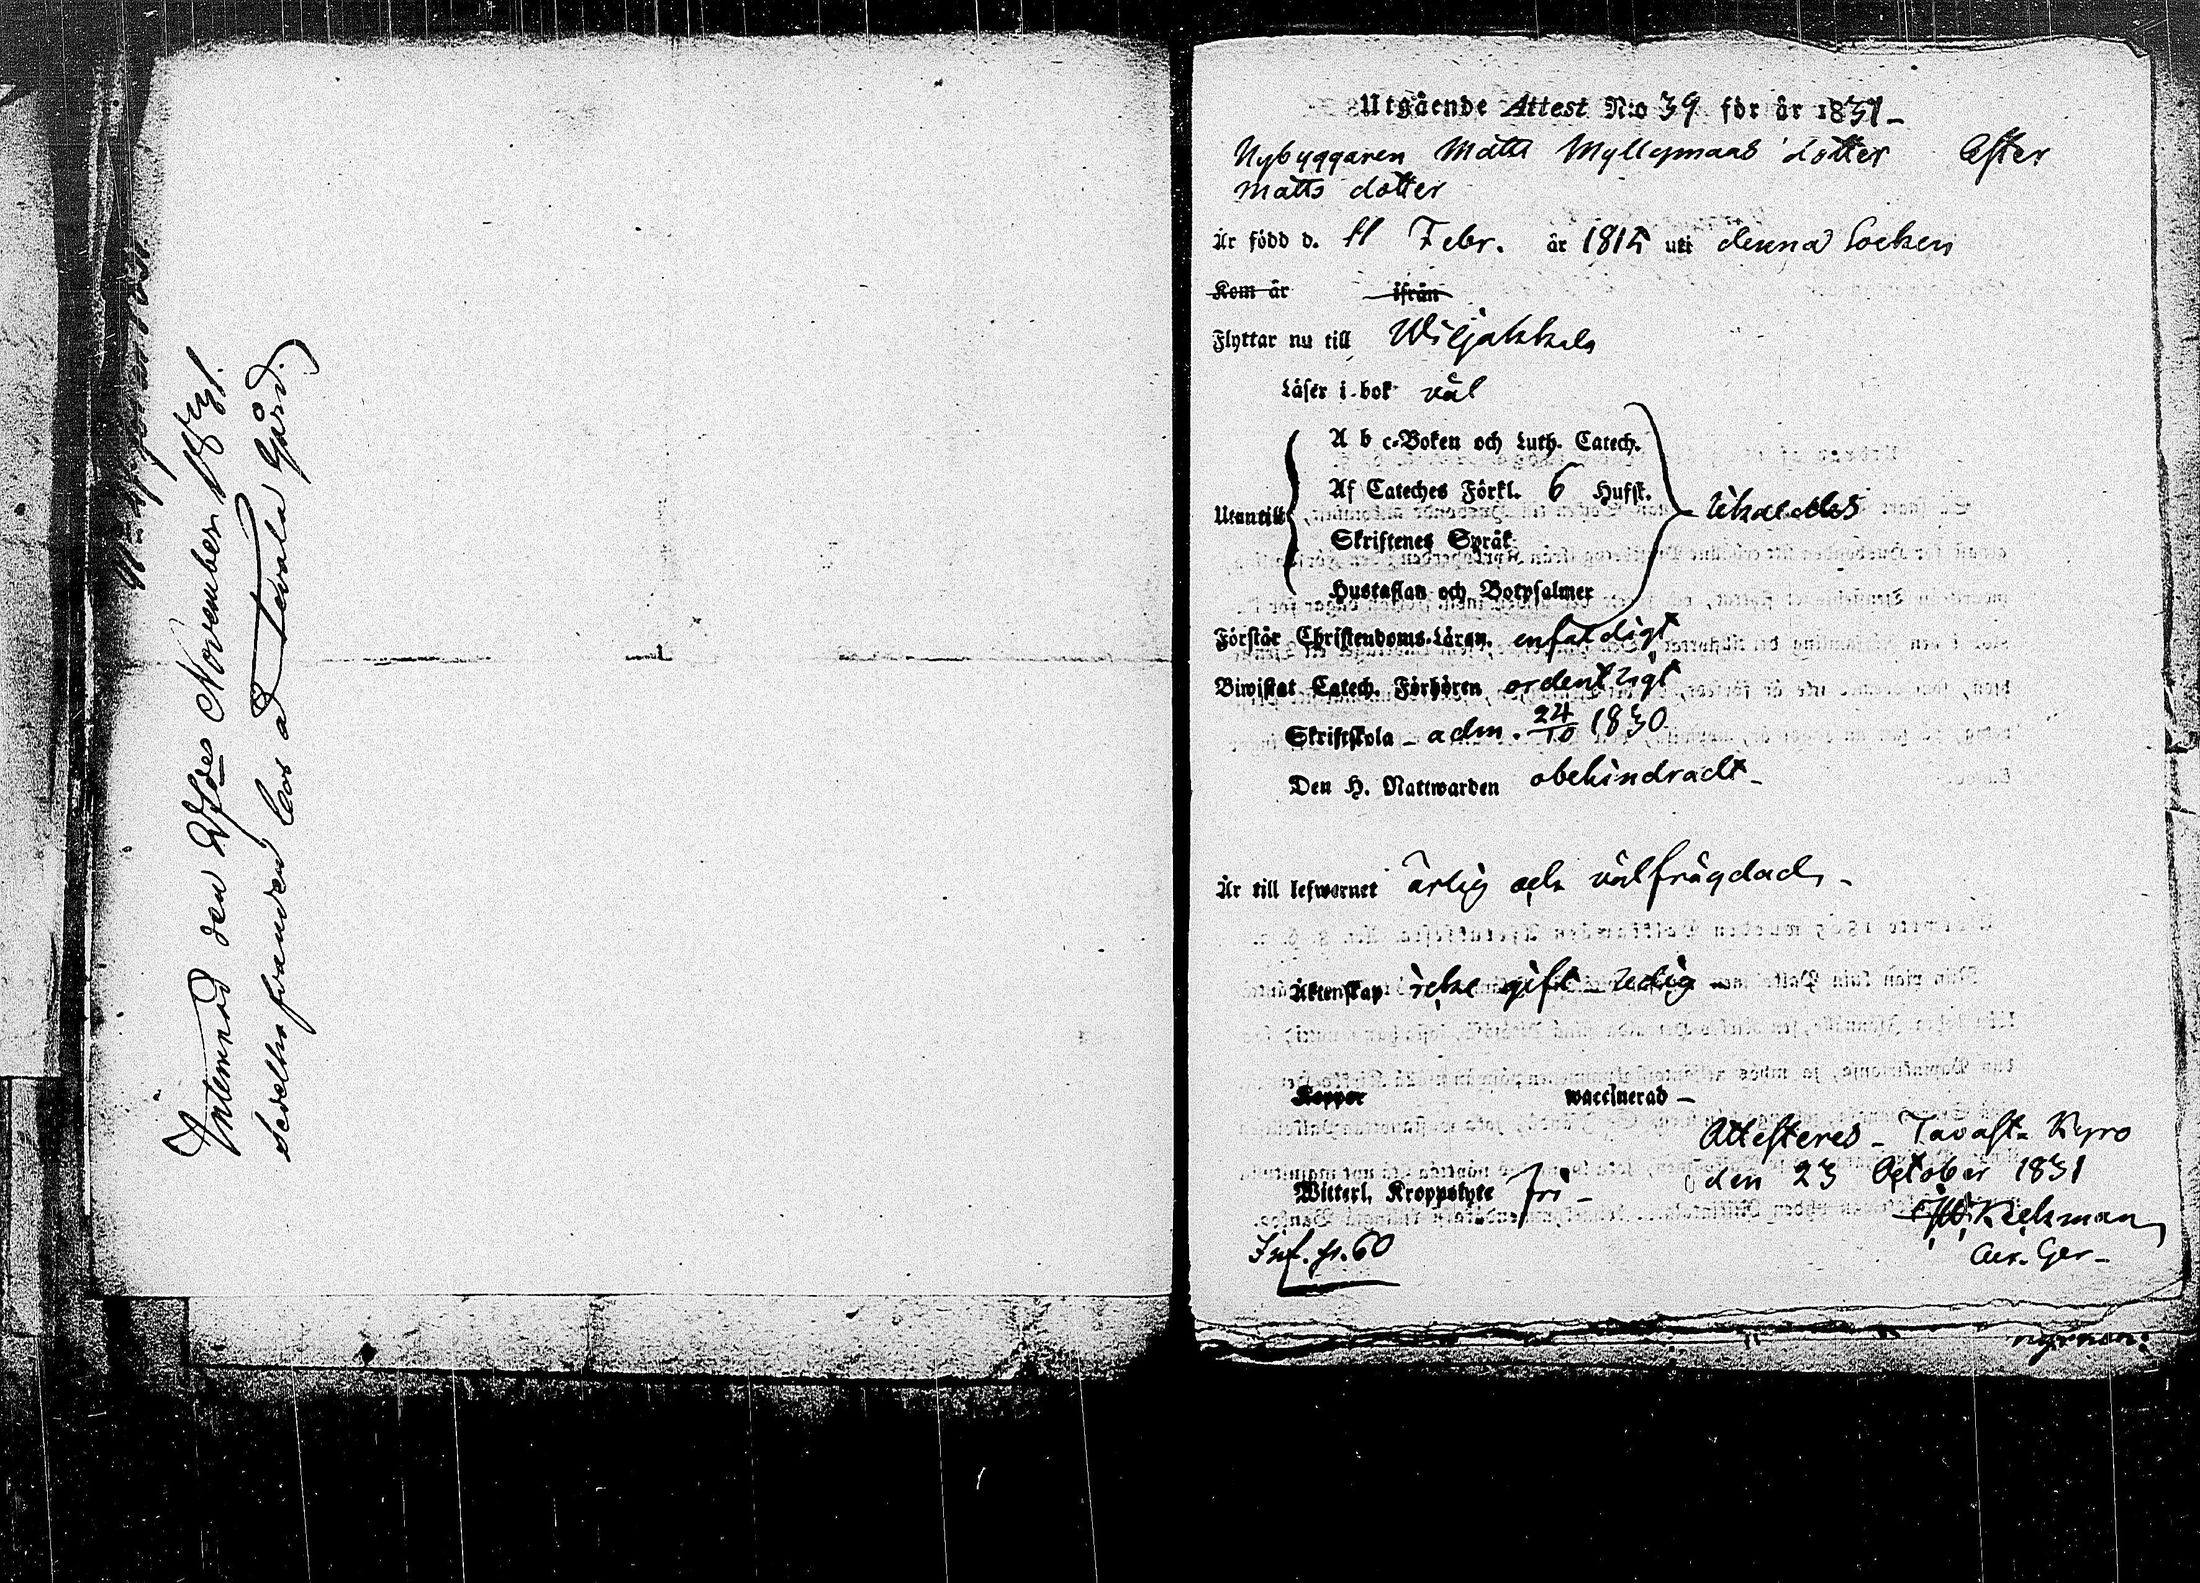 Intemnad den November
sedelhafvanden å Tevala Gård.
Utgående Attest N:o 39 för år 1831 –
Nybyggaren Matts Myllymaas dotter Ester
Matts dotter
Är född d. 11 Febr. år 1815 uti denna Socken
Kom år ifrån
Flyttar nu till Wiljakkala
Läser i bok väl
A b c-Boken och Luth. Catech.
Af Cateches Förkl. 6 Hufst.
Utantill
Skriftenes Språk
Hustaflan och Botpsalmer
Förstår Christendoms-Läran. enfaldigt
Biwistat Catech. Förhören ordentligt
Skriftskola – adm. 24/10 1830
Den H. Nattwarden obehindradt –
Är till lefwernet ärlig och välfrägdad –
Äktenskap icke gift ledig
Koppor waccinerad –
Attesteras – Tavast-Kyro
den 23 October 1831
Witterl. Kroppslyte fri –
Kiekman
Inf. p. 60